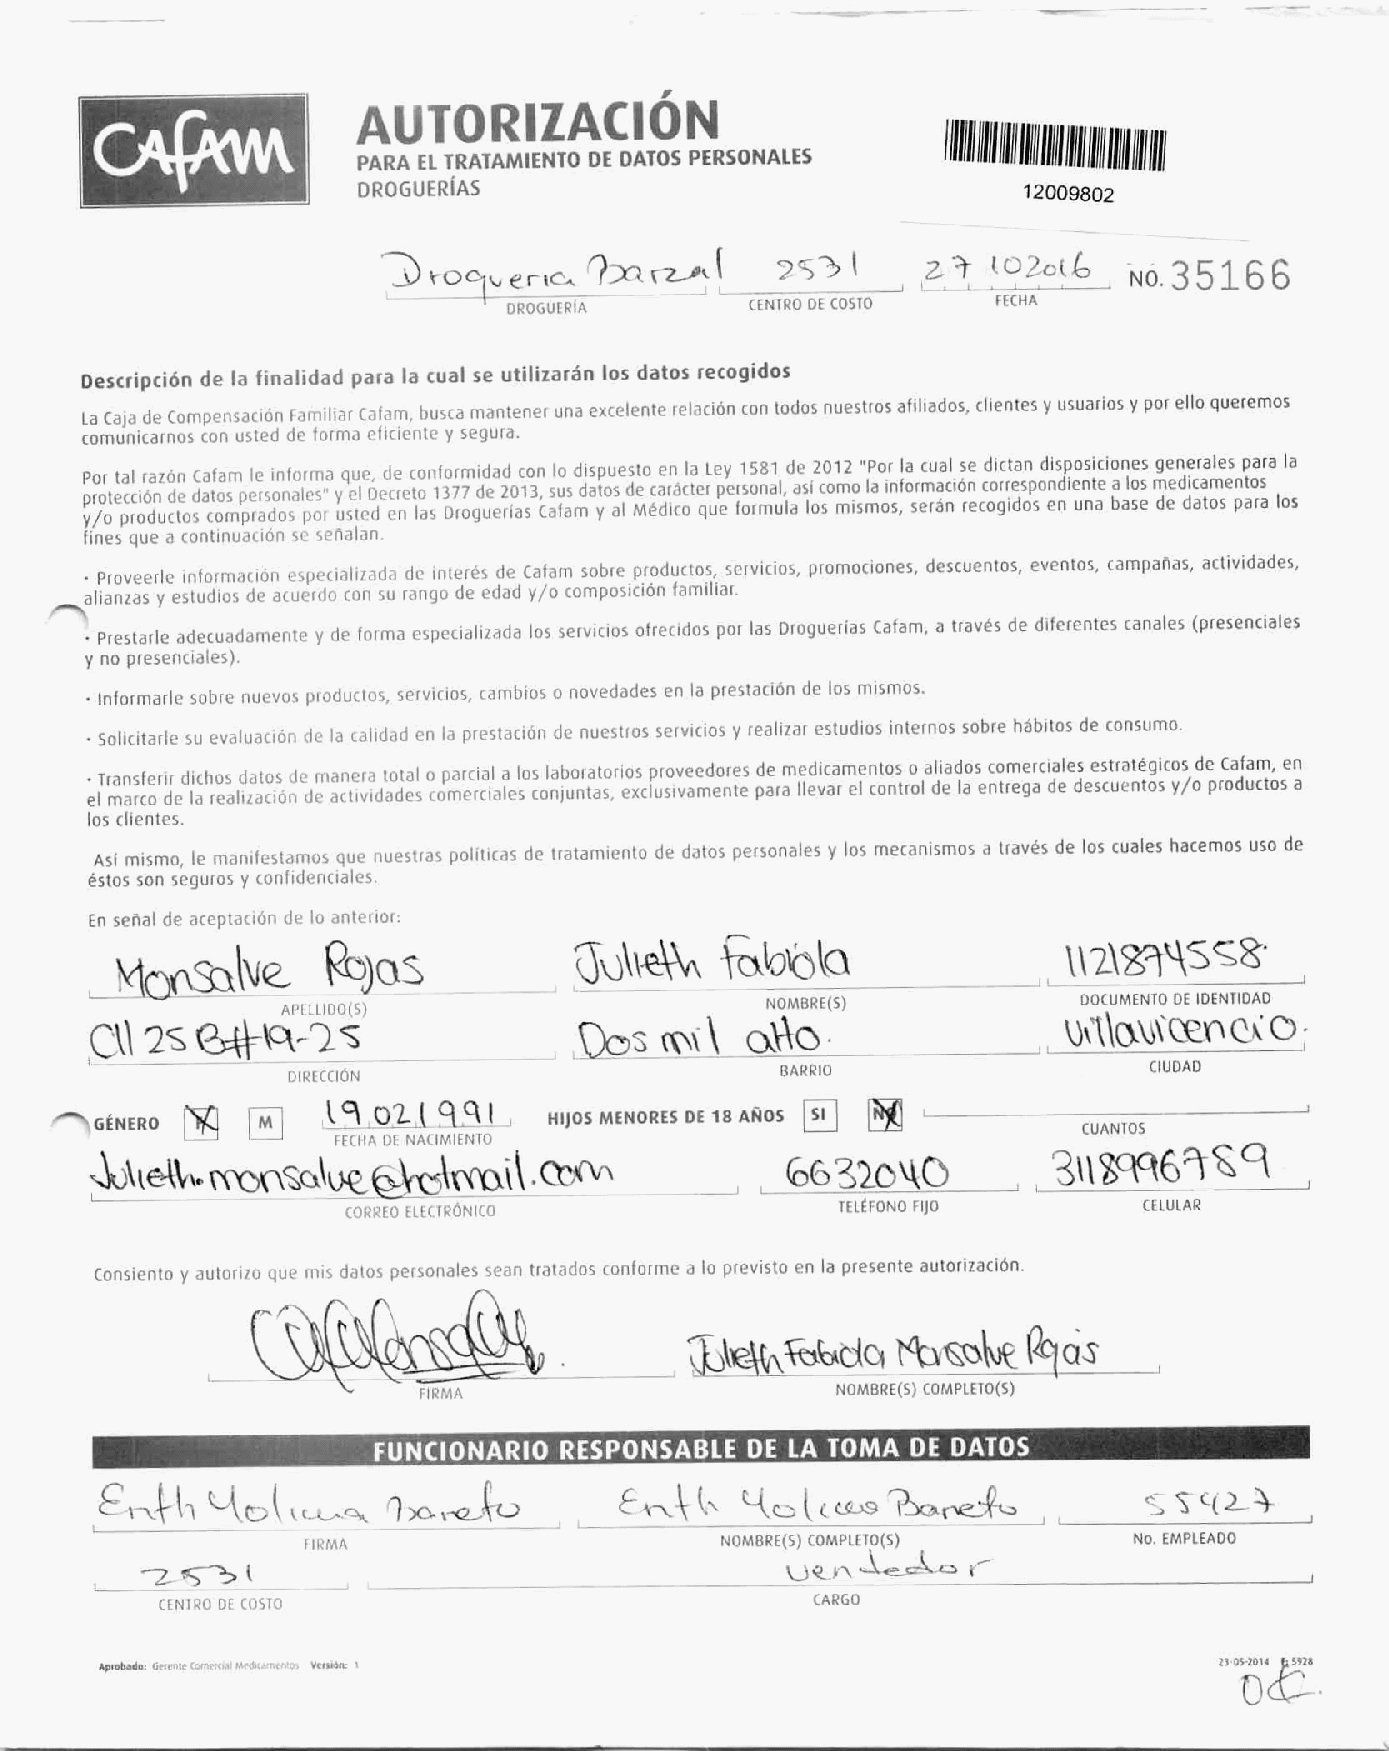 Cafam
AUTORIZACIÓN
PARA EL TRATAMIENTO DE DATOS PERSONALES
DROGUERÍAS
12009802
Drogueria Barzal 2531 27 102016 NO. 35166
DROGUERÍA CENTRO DE COSTO FECHA
Descripción de la finalidad para la cual se utilizarán los datos recogidos
La Caja de Compensación Familiar Cafam, busca mantener una excelente relación con todos nuestros afiliados, clientes y usuarios y por ello queremos
comunicarnos con usted de forma eficiente y segura.
Por tal razón Cafam le informa que, de conformidad con lo dispuesto en la Ley 1581 de 2012 "Por la cual se dictan disposiciones generales para la
protección de datos personales" y el Decreto 1377 de 2013, sus datos de carácter personal, así como la información correspondiente a los medicamentos
y/o productos comprados por usted en las Droguerías Cafam y al Médico que formula los mismos, serán recogidos en una base de datos para los
fines que a continuación se señalan.
· Proveerle información especializada de interés de Cafam sobre productos, servicios, promociones, descuentos, eventos, campañas, actividades,
alianzas y estudios de acuerdo con su rango de edad y/o composición familiar.
· Prestarle adecuadamente y de forma especializada los servicios ofrecidos por las Droguerías Cafam, a través de diferentes canales (presenciales
y no presenciales).
· Informarle sobre nuevos productos, servicios, cambios o novedades en la prestación de los mismos.
· Solicitarle su evaluación de la calidad en la prestación de nuestros servicios y realizar estudios internos sobre hábitos de consumo.
· Transferir dichos datos de manera total o parcial a los laboratorios proveedores de medicamentos o aliados comerciales estratégicos de Cafam, en
el marco de la realización de actividades comerciales conjuntas, exclusivamente para llevar el control de la entrega de descuentos y/o productos a
los clientes.
Así mismo, le manifestamos que nuestras políticas de tratamiento de datos personales y los mecanismos a través de los cuales hacemos uso de
éstos son seguros y confidenciales.
En señal de aceptación de lo anterior:
Monsalve Rojas Julieth Fabiola 1121874558
APELLIDO(S) NOMBRE(S) DOCUMENTO DE IDENTIDAD
Cll 25 B#19-25 Dos mil alto. Villavicencio.
DIRECCIÓN BARRIO CIUDAD
GÉNERO M 19021991 HIJOS MENORES DE 18 AÑOS SI NO
FECHA DE NACIMIENTO CUANTOS
Julieth.monsalve@hotmail.com 6632040 3118996789
CORREO ELECTRÓNICO TELÉFONO FIJO CELULAR
Consiento y autorizo que mis datos personales sean tratados conforme a lo previsto en la presente autorización.
Julieth Fabiola Monsalve Rojas
FIRMA NOMBRE(S) COMPLETO(S)
FUNCIONARIO RESPONSABLE DE LA TOMA DE DATOS
Enth Barreto Enth Barreto 55427
FIRMA NOMBRE(S) COMPLETO(S) No. EMPLEADO
2531 vendedor
CENTRO DE COSTO CARGO
Aprobado: Gerente Comercial Medicamentos Versión: 1 23-05-2014 5928